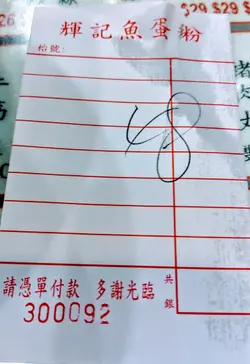 $29 $29
輝記魚蛋粉
枱號:
48
請憑單付款 多謝光臨
共銀
300092